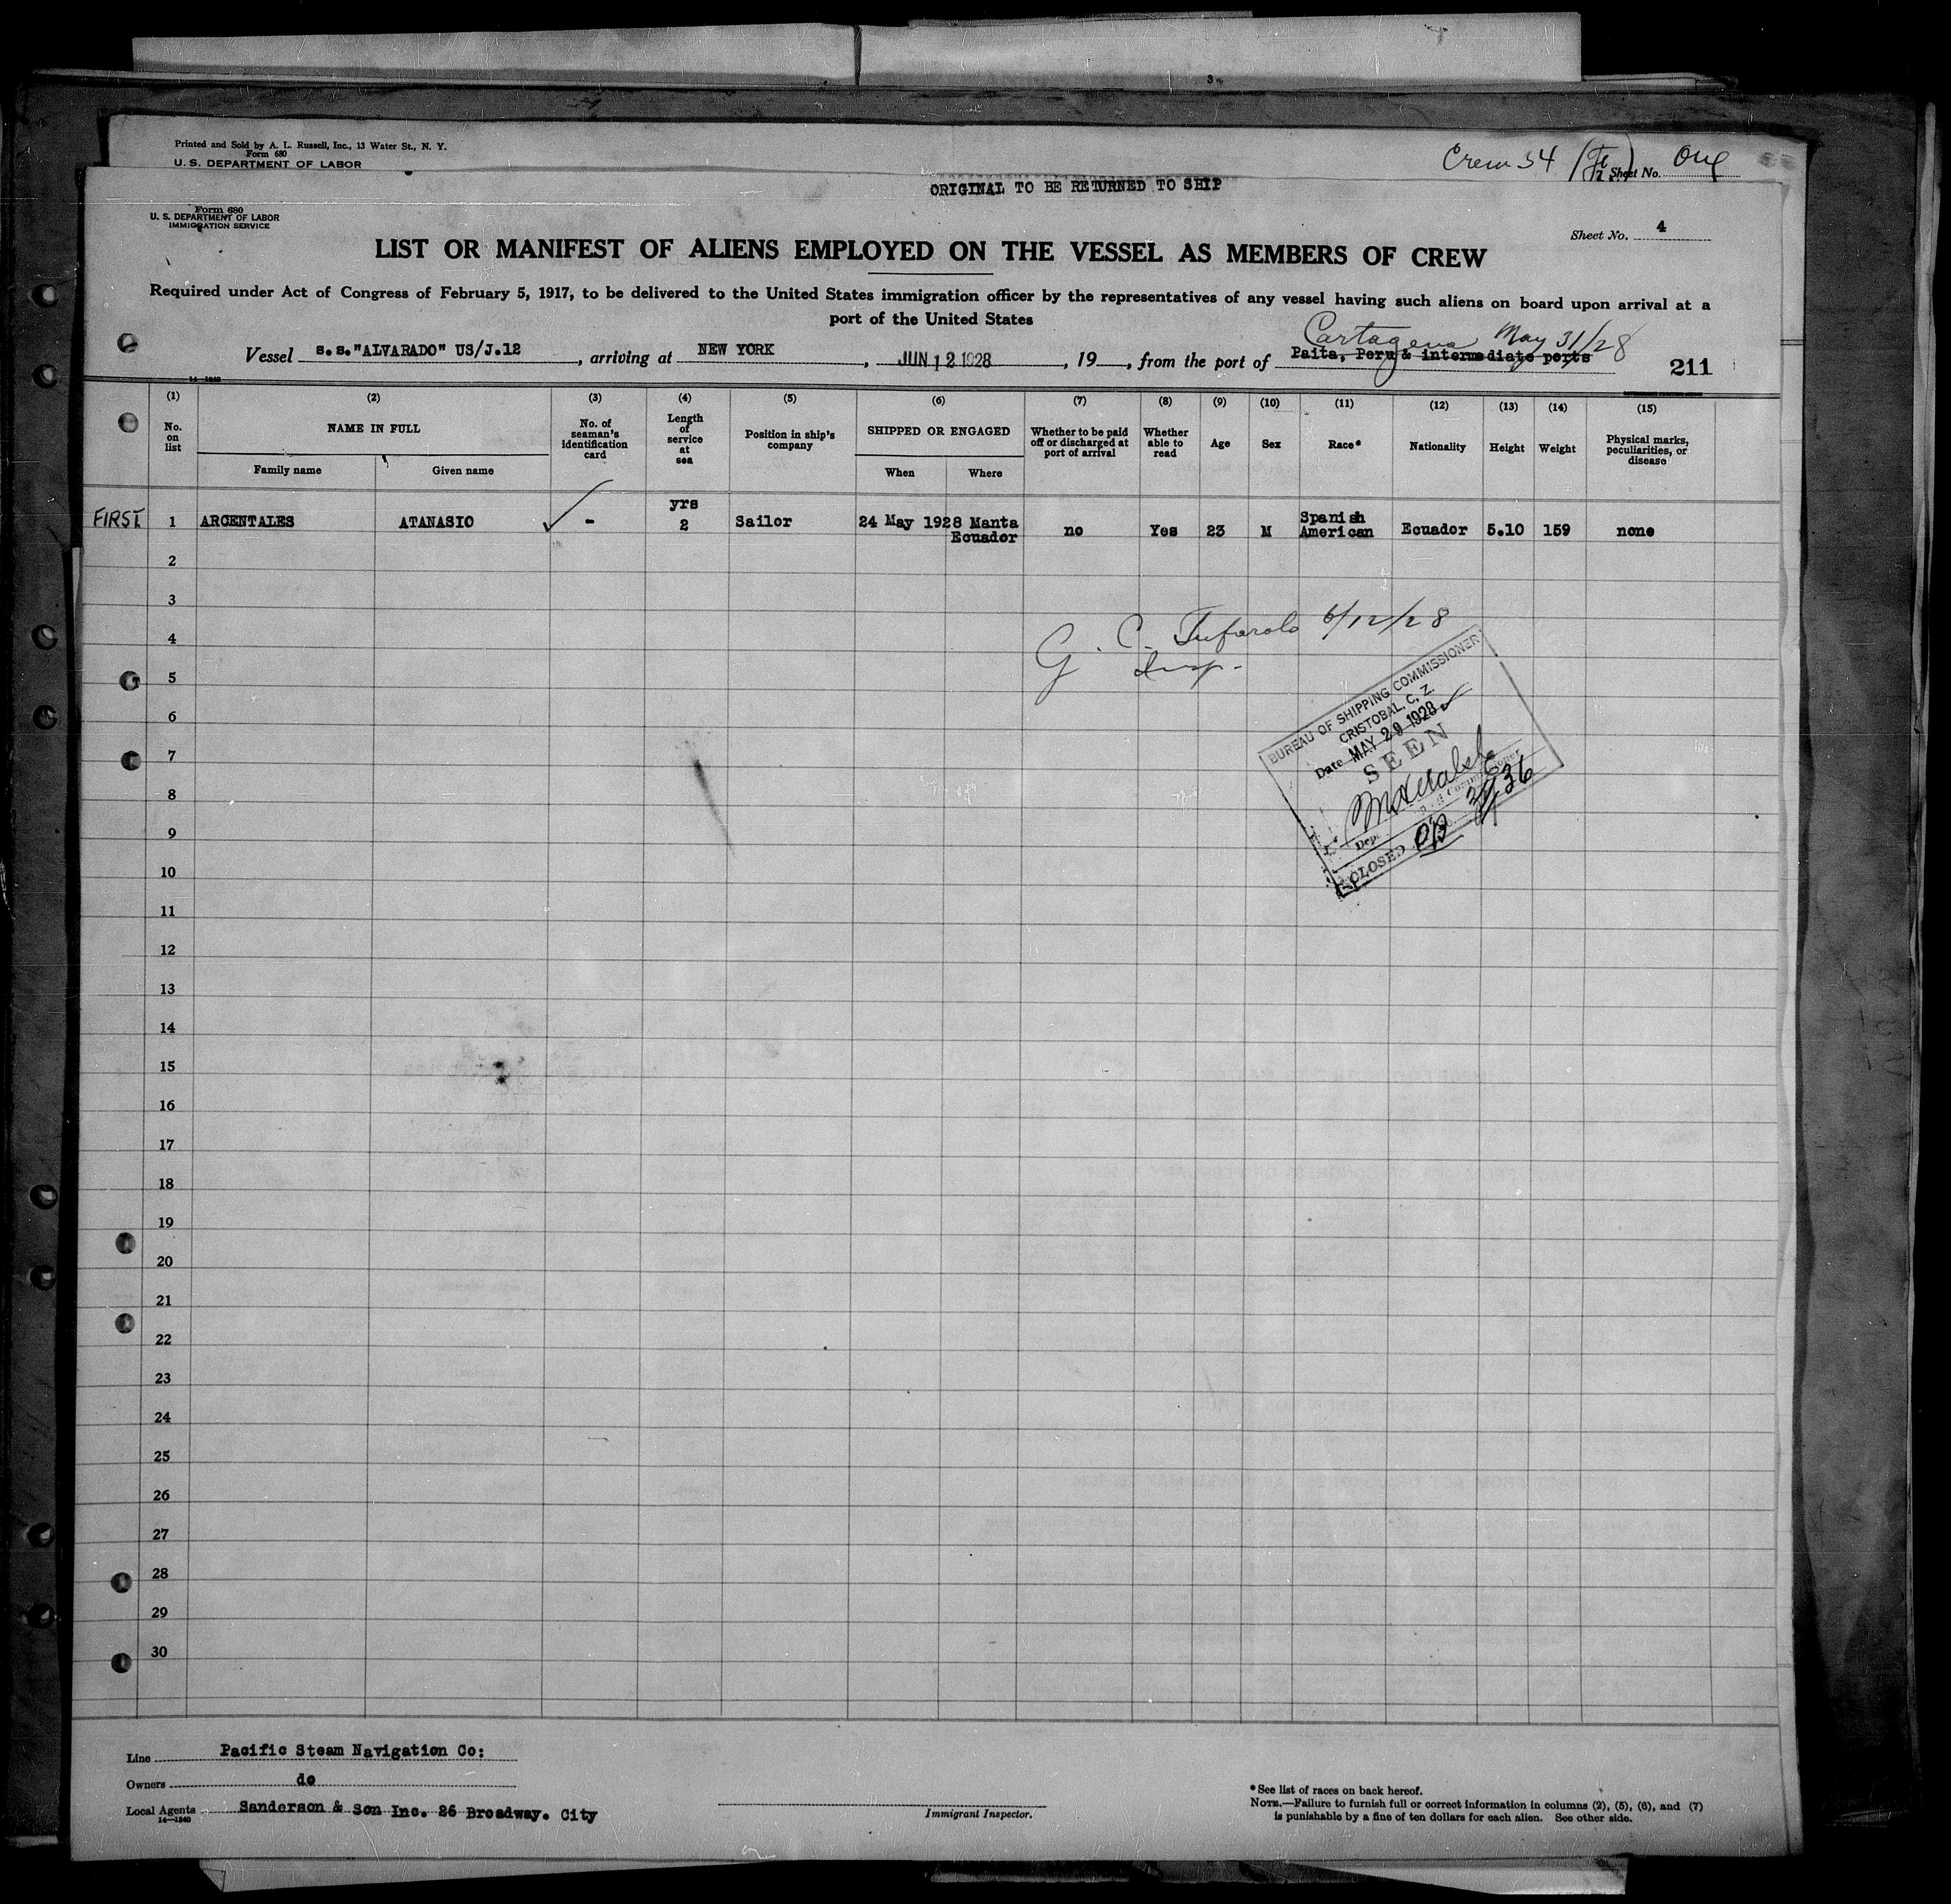 Printed and Sold by A. L. Russell, Inc., 13 Water St., N. Y.
Form 680
U. S. DEPARTMENT OF LABOR
Crew 34
Sheet No. One
ORIGINAL TO BE RETURNED TO SHIP
Form 680
U. S. DEPARTMENT OF LABOR
IMMIGRATION SERVICE
Sheet No. 4
LIST OR MANIFEST OF ALIENS EMPLOYED ON THE VESSEL AS MEMBERS OF CREW
Required under Act of Congress of February 5, 1917, to be delivered to the United States immigration officer by the representatives of any vessel having such aliens on board upon arrival at a
port of the United States
Cartagena May 31/28
Vessel s.s."ALVARADO" US/J.12, arriving at NEW YORK, JUN 12 1928, 19, from the port of Paita, Peru & intermediate ports
211
14-1240
(1) (2) (3) (4) (5) (6) (7) (8) (9) (10) (11) (12) (13) (14) (15)
No. on list
NAME IN FULL
Family name
Given name
No. of seaman's identification card
Length of service at sea
Position in ship's company
SHIPPED OR ENGAGED
When
Where
Whether to be paid off or discharged at port of arrival
Whether able to read
Age
Sex
Race*
Nationality
Height
Weight
Physical marks, peculiarities, or disease
FIRST 1 ARCENTALES ATANASIO - yrs 2 Sailor 24 May 1928 Manta Ecuador no Yes 23 M Spanish American Ecuador 5.10 159 none
2
3
4
5
6
7
8
9
10
11
12
13
14
15
16
17
18
19
20
21
22
23
24
25
26
27
28
29
30
G. C. Tufarolo 6/12/28
Insp.
BUREAU OF SHIPPING COMMISSIONER
CRISTOBAL, C. Z.
Date MAY 29 1928
SEEN
Dep.
CLOSED
Line Pacific Steam Navigation Co:
Owners do
Local Agents Sanderson & Son Inc. 26 Broadway. City
14-1240
Immigrant Inspector.
*See list of races on back hereof.
NOTE.—Failure to furnish full or correct information in columns (2), (5), (6), and (7)
is punishable by a fine of ten dollars for each alien. See other side.